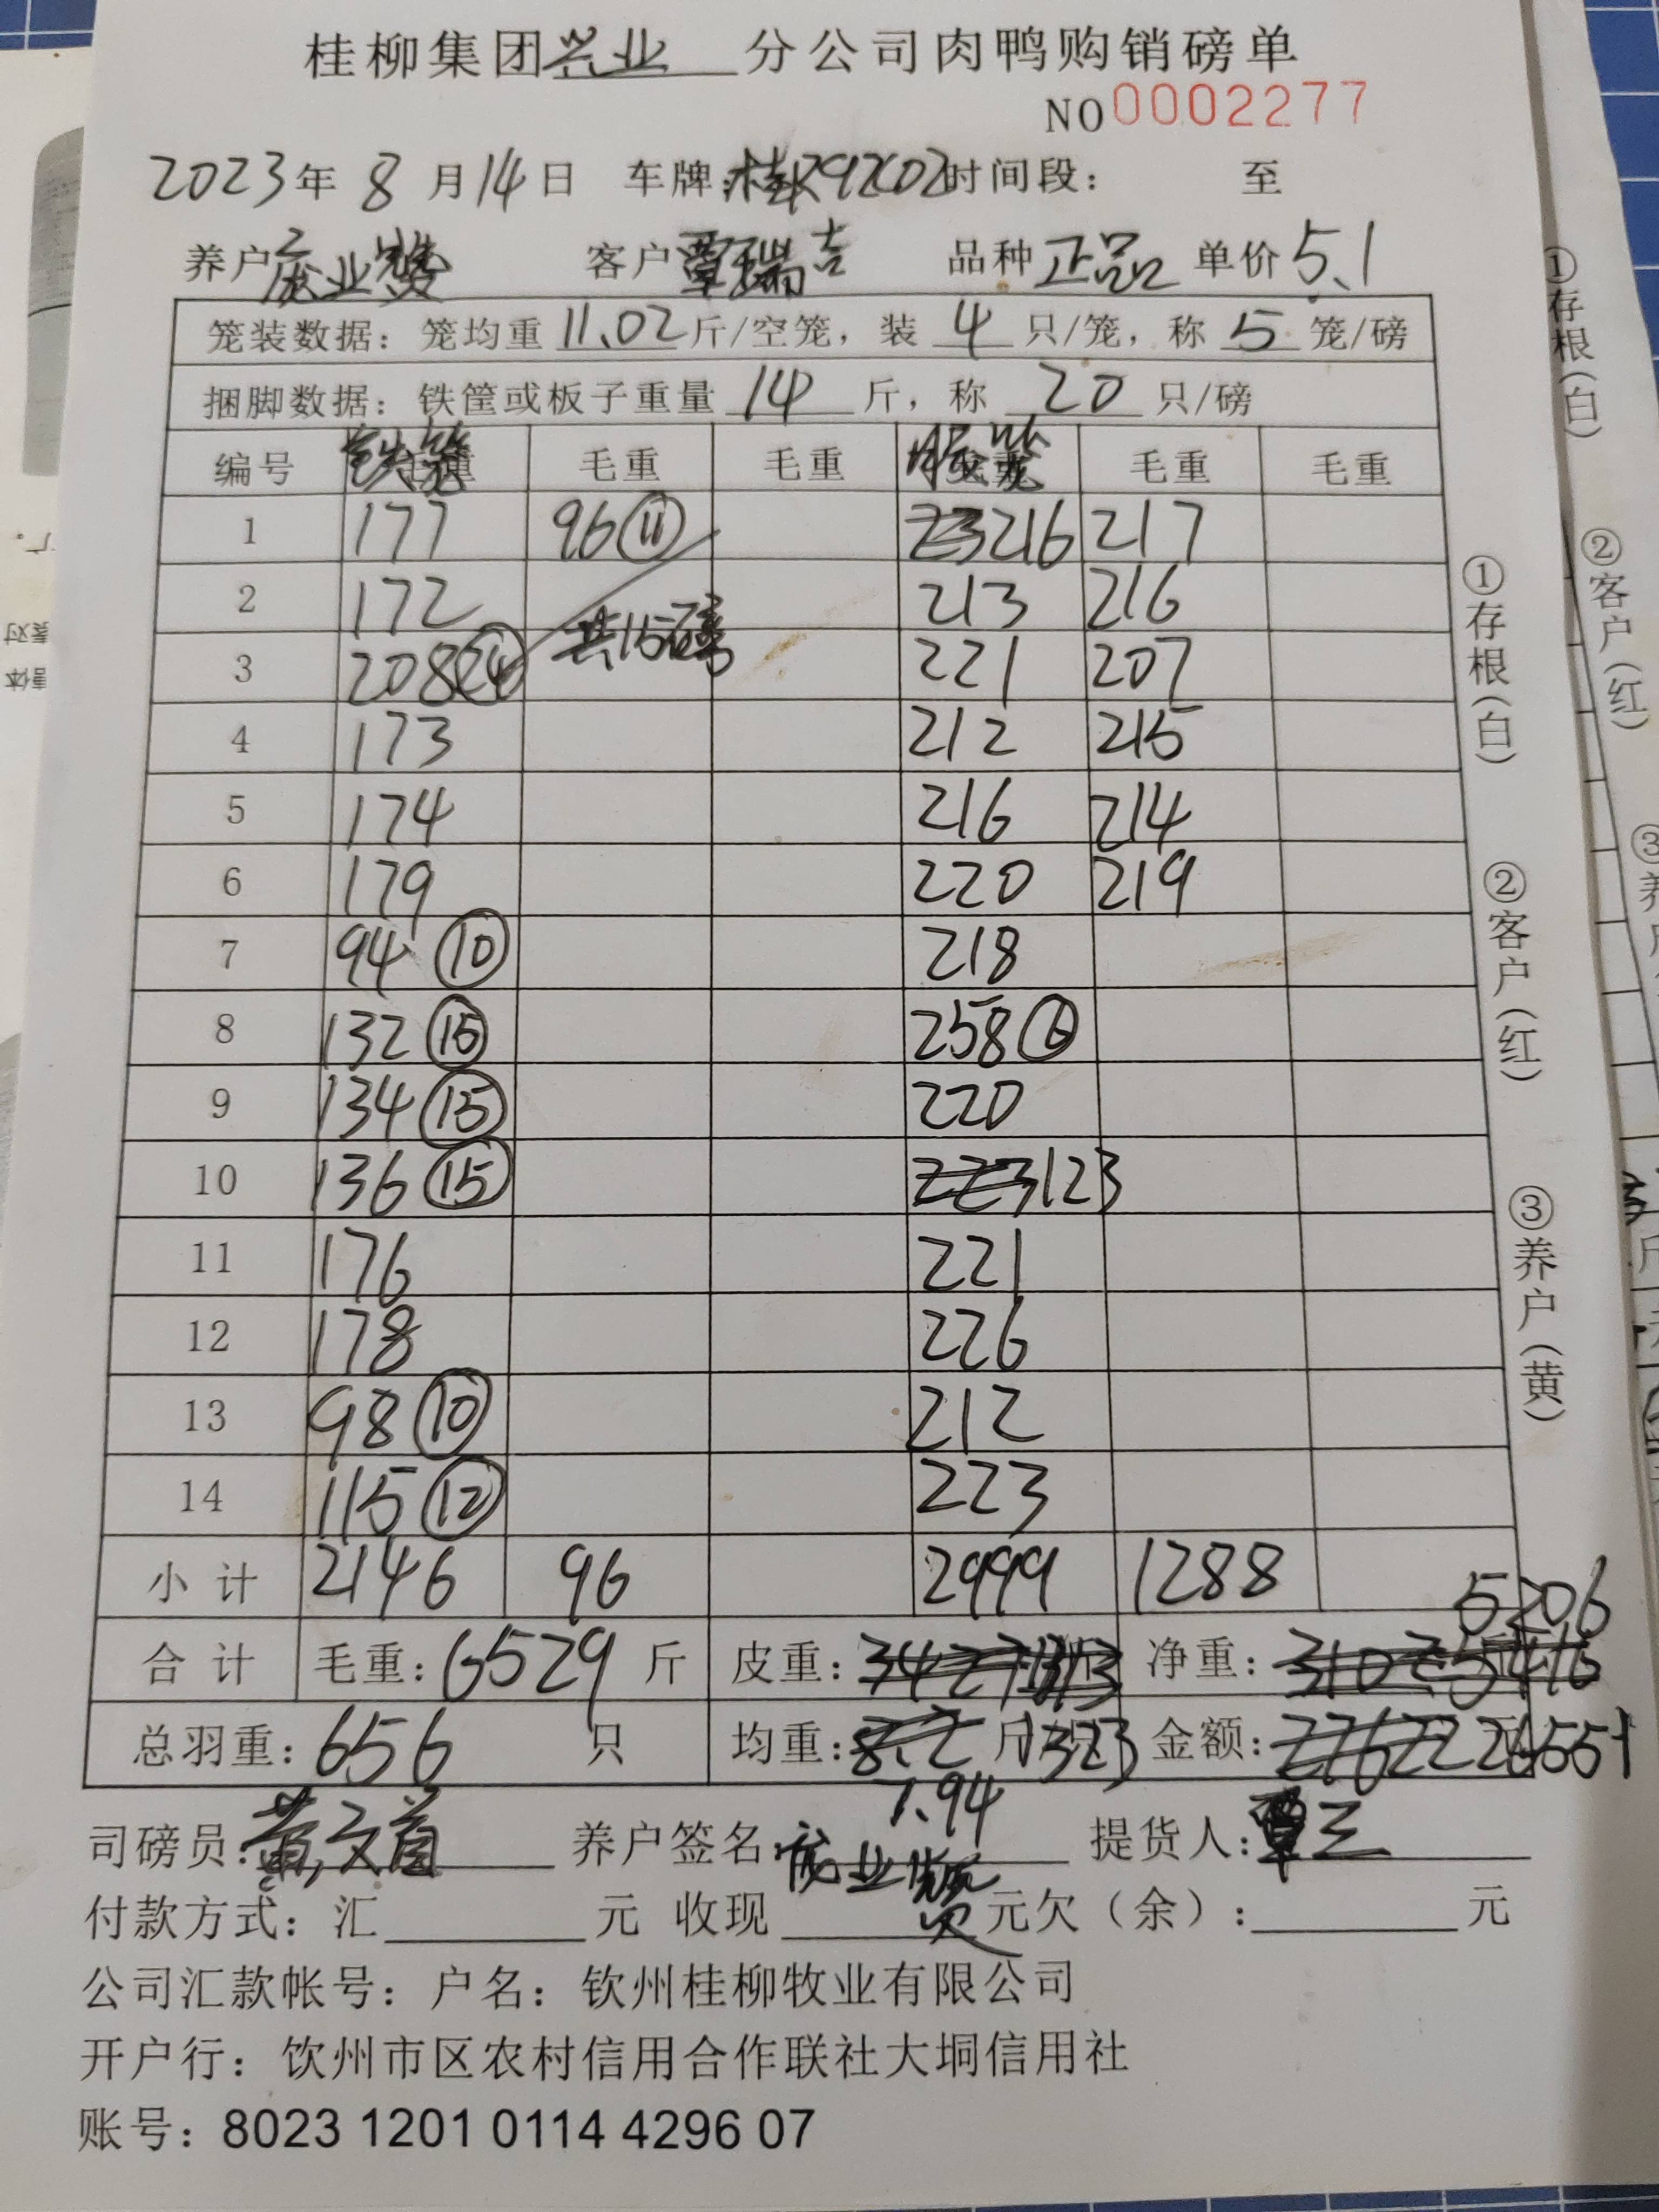 桂柳集团兴业分公司肉鸭购销磅单
NO 0002277
2023年8月14日 车牌:桂K29202时间段: 至
养户庞业 客户覃瑞吉 品种正品 单价5.1
笼装数据:笼均重11.02斤/空笼,装4只/笼,称5笼/磅
捆脚数据:铁筐或板子重量14斤,称20只/磅
编号 铁笼 毛重 毛重 胶笼 毛重 毛重
1 177 96⑪ 216 217
2 172 共15磅 213 216
3 208㉔ 221 207
4 173 212 215
5 174 216 214
6 179 220 219
7 94⑩ 218
8 132⑮ 258⑥
9 134⑮ 220
10 136⑮ 123
11 176 221
12 178 226
13 98⑩ 212
14 115⑫ 223
小计 2146 96 2999 1288
5206
合计 毛重:6529斤 皮重: 净重:
总羽重:656只 均重: 斤 1323 金额: 26551
7.94
司磅员:黄文首 养户签名 庞业 提货人:覃三
付款方式:汇 元 收现 元欠(余): 元
公司汇款帐号:户名:钦州桂柳牧业有限公司
开户行:饮州市区农村信用合作联社大垌信用社
账号:8023 1201 0114 4296 07
①存根(白) ②客户(红) ③养户(黄)
①存根(白) ②客户(红) ③养